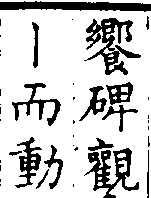 饗碑觀
丨而動